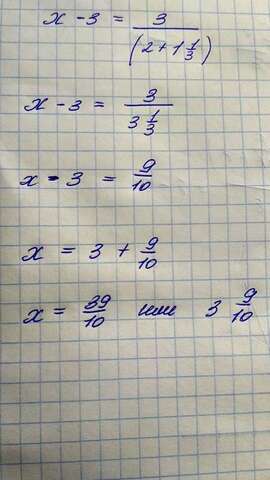 x - 3 = 3/(2 + 1 1/3)
x - 3 = 3/(3 1/3)
x - 3 = 9/10
x = 3 + 9/10
x = 39/10 или 3 9/10